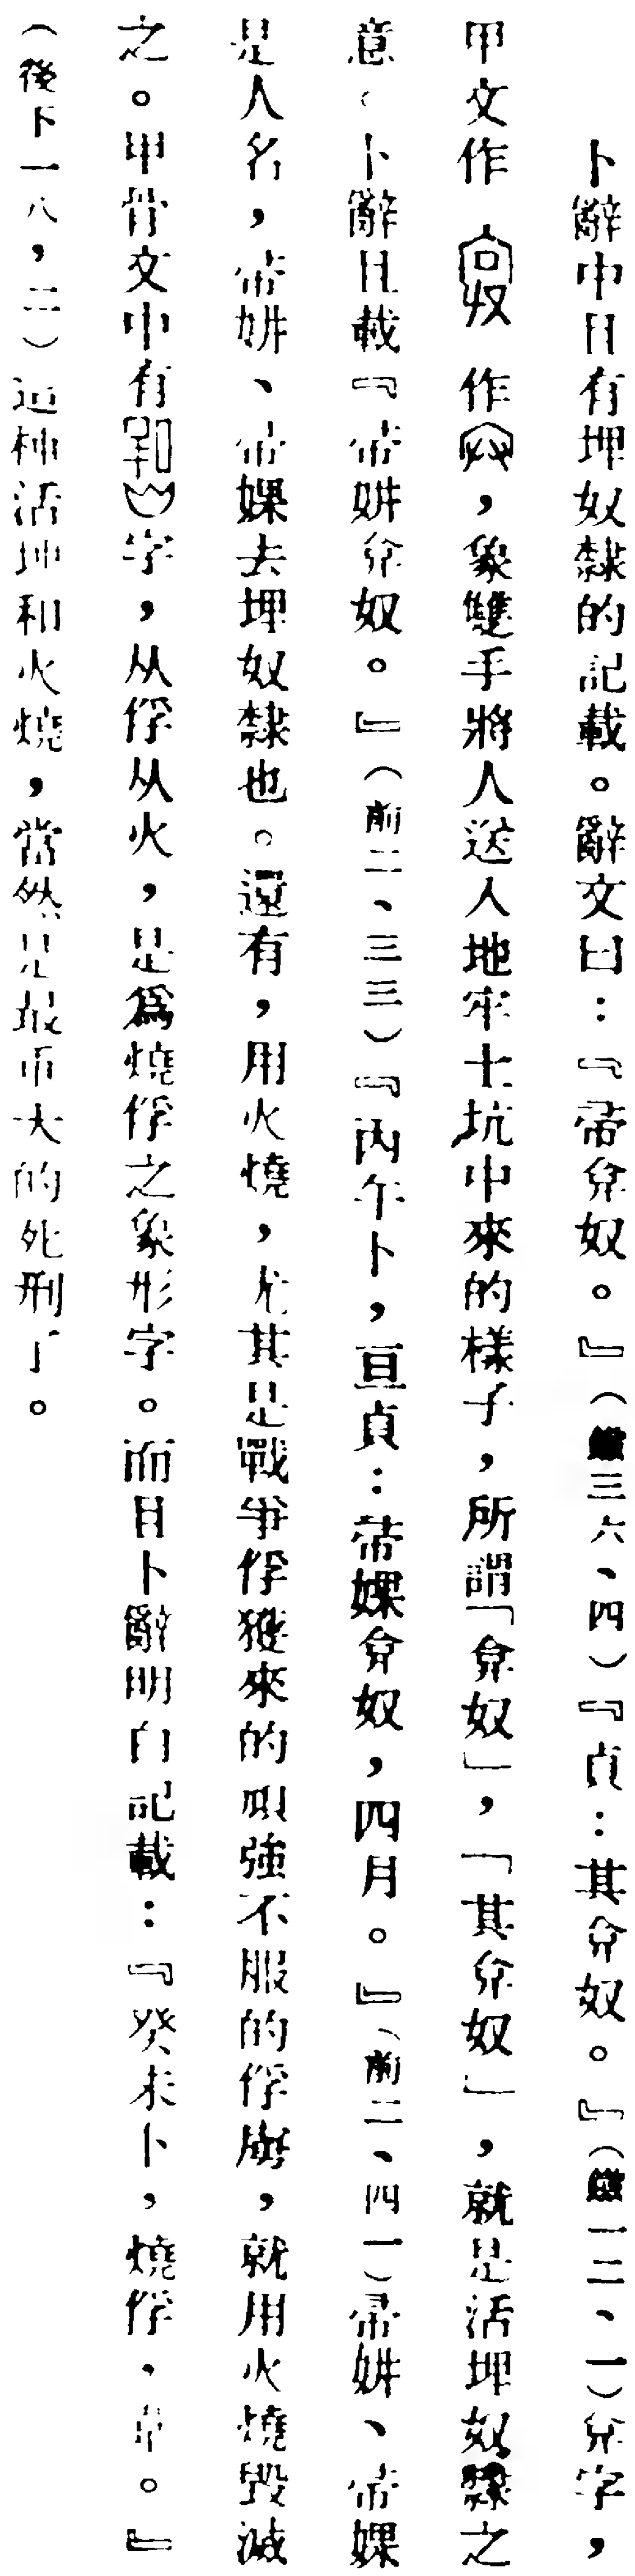 卜辭中且有埋奴隸的記載。辭文曰：『帚弇奴。』（鐵三六、四）『貞：其弇奴。』（鐵一二、一）弇字，
甲文作 作，象雙手將人送入地牢土坑中來的樣子，所謂「弇奴」，「其弇奴」，就是活埋奴隸之
意。卜辭且載『帚妌弇奴。』（前二、三三）『丙午卜，亘貞：帚婐弇奴，四月。』（前二、四一）帚妌、帚婐
是人名，帚妌、帚婐去埋奴隸也。還有，用火燒，尤其是戰爭俘獲來的頑強不服的俘虜，就用火燒毀滅
之。甲骨文中有字，从俘从火，是爲燒俘之象形字。而且卜辭明白記載：『癸未卜，燒俘，。』
（後下一八，二）這種活埋和火燒，當然是最重大的死刑了。